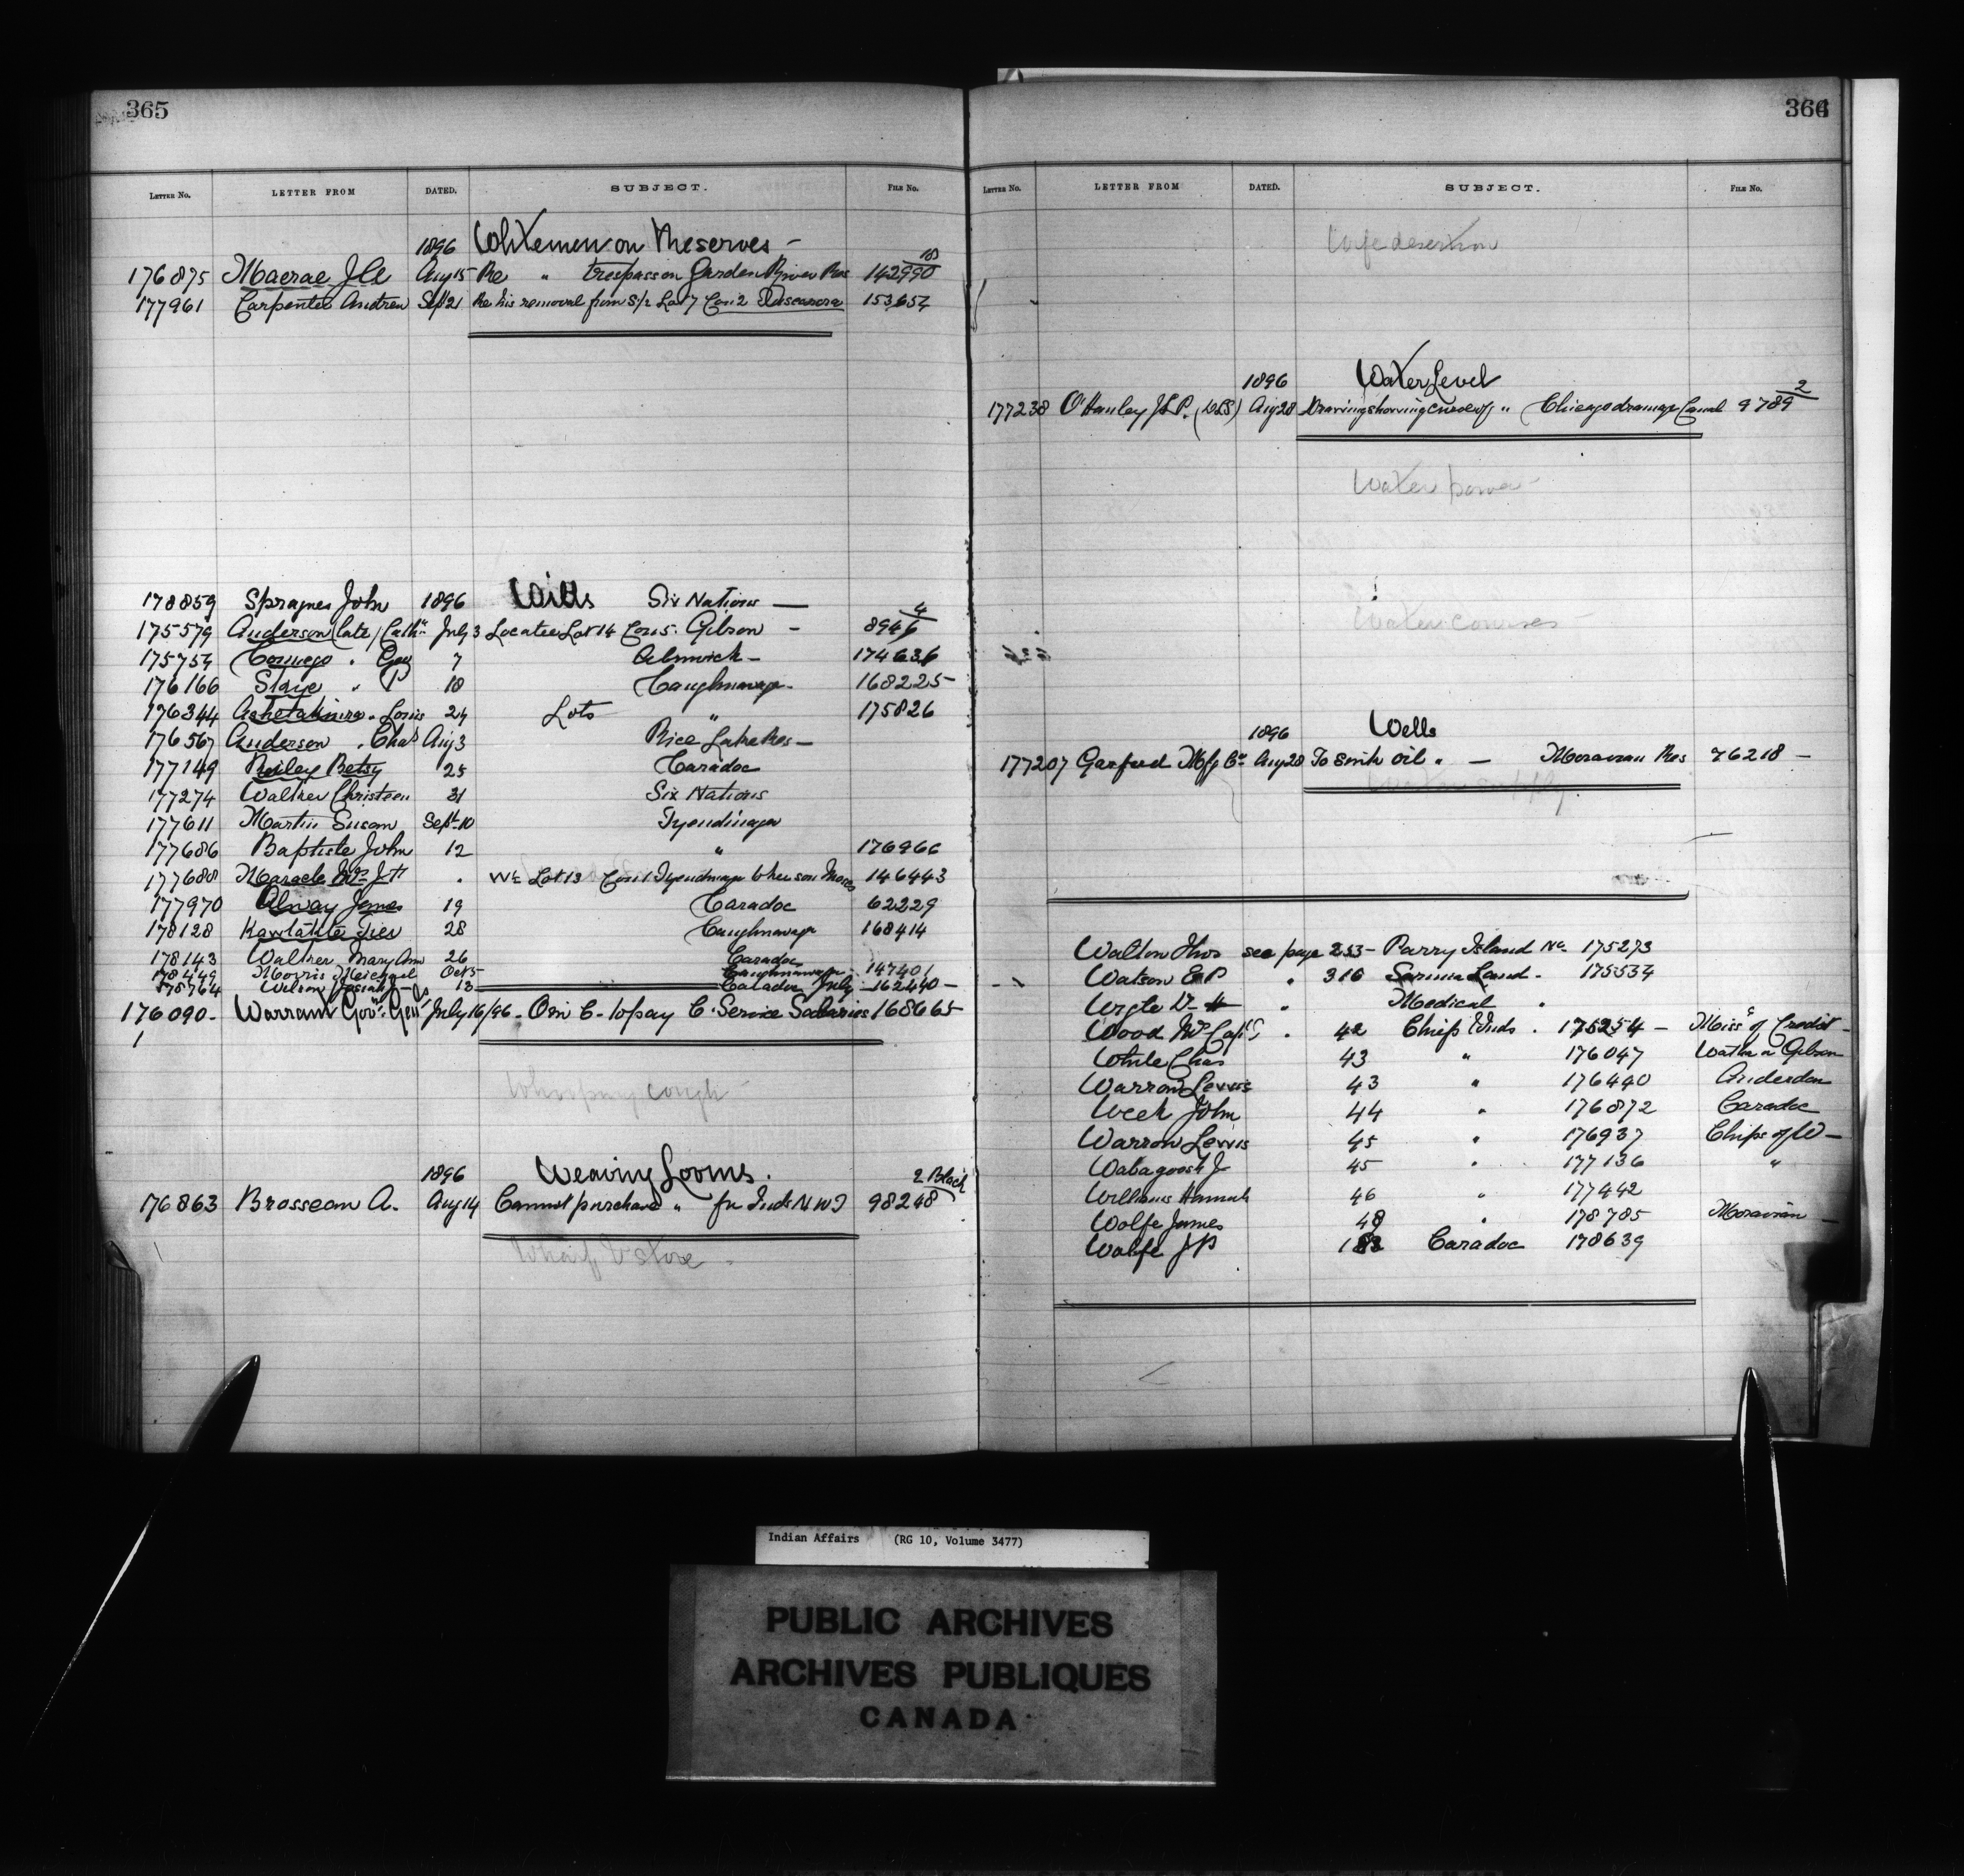 365
LETTER No. LETTER FROM DATED. SUBJECT. FILE No.
1896 Whitemen on Reserves —
176875 Macrae J Aug 15 Re " trespass on Garden River Res 142990
177961 Carpenter Andrew Sep 21 Re his removal from S/2 Lot 7 Con 2 Tuscarora 153654
178859 Spragues John 1896 Wills Six Nations —
175579 Anderson (late) Cath July 3 Locatee Lot 14 Con 5. Gibson — 8946 4
175754 " 7 Alnwick — 174636
176166 " P 18 Caughnawaga - 168225
176344 " Louis 24 Lots " 175826
176567 Anderson " Chas Aug 3 Rice Lake Res —
177149 Betsy 25 Caradoc
177274 Walker Christeen 31 Six Nations
177611 Martin Susan Sept 10 Tyendinaga
177686 Baptiste John 12 " 176966
177688 Maracle " W½ Lot 13 Con 1 Tyendinaga 146443
177970 James 19 Caradoc 62229
178128 28 Caughnawaga 168414
178143 Walker Mary Ann 26 Caradoc
178449 Morris Michael Oct 5 Caughnawaga 147401
178764 Wilson 13 Caradoc July 162440 —
176090 - Warrant Gov. Genl's July 16/96 - O in C - to pay C. Service Salaries 168665
Whooping cough
1896 Weaving Looms. 2 Black
176863 Brosseau A. Aug 14 Cannot purchase " for Inds N W T 98248
Wharf & store
366
LETTER No. LETTER FROM DATED. SUBJECT. FILE No.
Wife desertion
1896 Water Level
177238 O'Hanley J.L.P. (DLS) Aug 28 Drawing showing " Chicago drainage Canal 9789 2
Water power
Water courses
1896 Wells
177207 Mfg Co. Aug 28 To sink oil " — Moravian Res 76218 —
Water supply
Walton Thos see page 233 - Parry Island No. 175273
Watson E P " 316 Sarnia Land - 175534
" Medical "
Wood " 42 Chiefs Inds . 175254 — Miss. of Credit
White Chas 43 " 176047 Gibson
Warrow Lewis 43 " 176490 Anderdon
John 44 " 176872 Caradoc
Warrow Lewis 45 " 176937 Chips of W —
Wabagoosh J 45 " 177136 "
Williams Hannah 46 " 177442
Wolfe James 48 " 178785 Moravian —
Wolfe J P Caradoc 178639
Indian Affairs (RG 10, Volume 3477)
PUBLIC ARCHIVES
ARCHIVES PUBLIQUES
CANADA